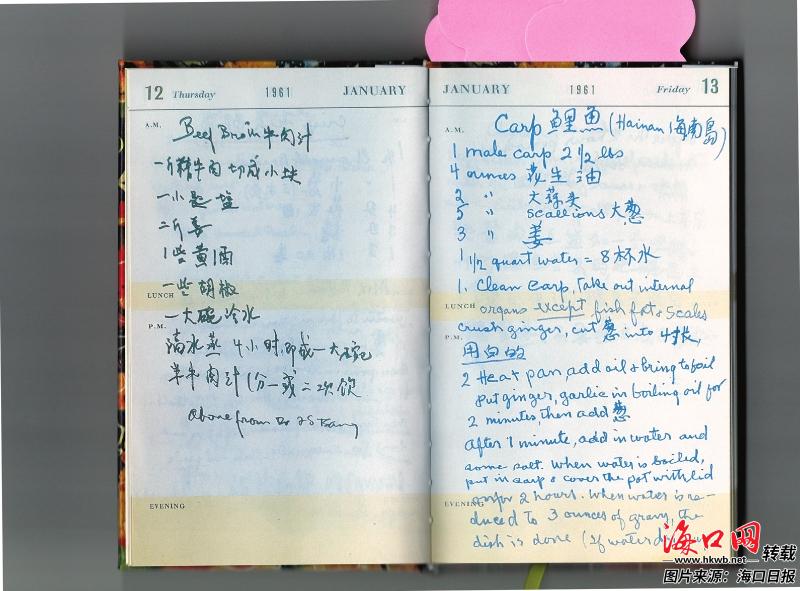 12 Thursday 1961 JANUARY
A.M.
Beef Broth 牛肉汁
一斤精牛肉 切成小块
一小匙盐
二斤姜
1些黄酒
一些胡椒
LUNCH
一大碗冷水
P.M.
隔水蒸 4小时,即成一大碗
半牛肉汁 (分一或二次饮
above from Dr
EVENING
JANUARY 1961 Friday 13
A.M.
Carp 鲤鱼 (Hainan 海南岛)
1 male carp 2 1/2 lbs
4 ounces 花生油
2 " 大蒜头
5 " scallions 大葱
3 " 姜
1 1/2 quart water = 8杯水
1. Clean carp, Take out internal
LUNCH
organs except fish fat & scales
crush ginger, cut 葱 into 4寸长,
P.M.
用白的
2 Heat pan, add oil & bring to boil
put ginger, garlic in boiling oil for
2 minutes, then add 葱
after 1 minute, add in water and
some salt. When water is boiled,
put in carp & cover the pot with lid
for 2 hours. When water is re-
EVENING
duced to 3 ounces of gravy, the
dish is done (If water
海口网
www.hkwb.net 转载
图片来源：海口日报